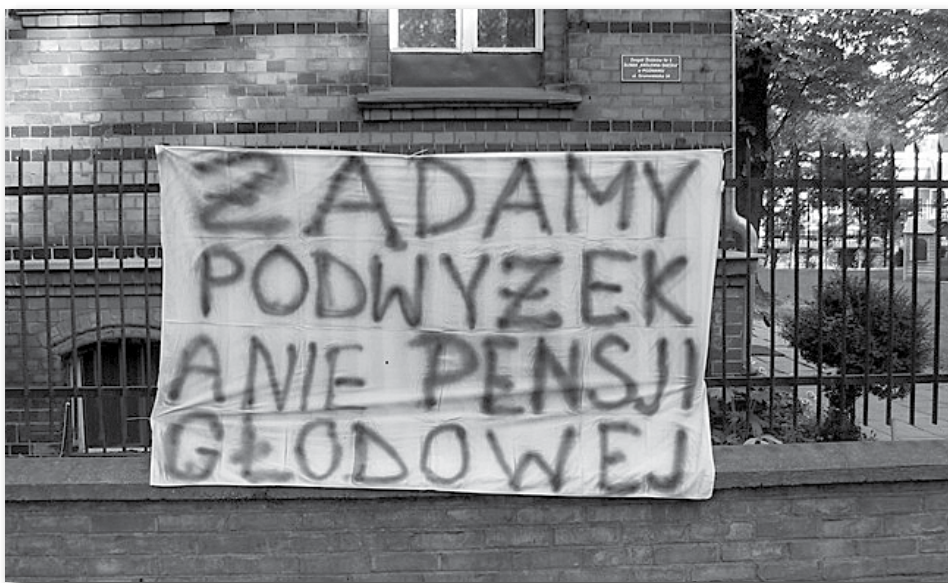 ŻĄDAMY
PODWYŻEK
A NIE PENSJI
GŁODOWEJ